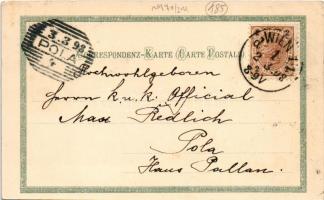 (185)
3.3.98
POLA
CORRESPONDENZ-KARTE (CARTE POSTALE)
WIEN
2.3.98
8-9V
Hochwohlgeboren
Herrn k. u. k. Official
Max Redlich
Pola
Haus Pallan.